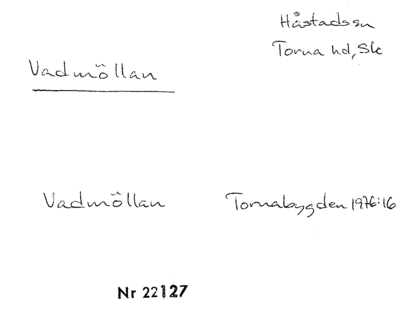 Håstads sn
Torna hd, Sk
Vadmöllan
Vadmöllan Tornabygden 1976:16
Nr 22127